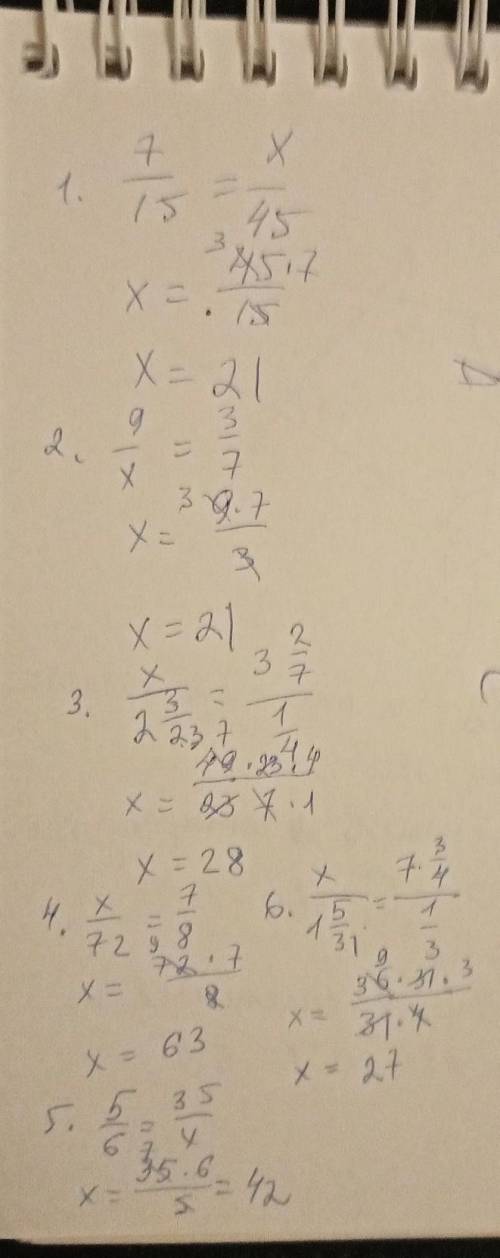 1. 7/15 = x/45
x = ³45·7/15
x = 21
2. 9/x = 3/7
x = ³9·7/3
x = 21
3. x/2 3/23 = 3 2/7 / 1/4
x = 49·23·4/23 7·1
x = 28
4. x/72 = 7/8
x = ⁹72·7/8
x = 63
5. 5/6 = 35/x
x = ⁷35·6/5 = 42
6. x/1 5/31 = 7·3/4 / 1/3
x = 36⁹·31·3/31·4
x = 27